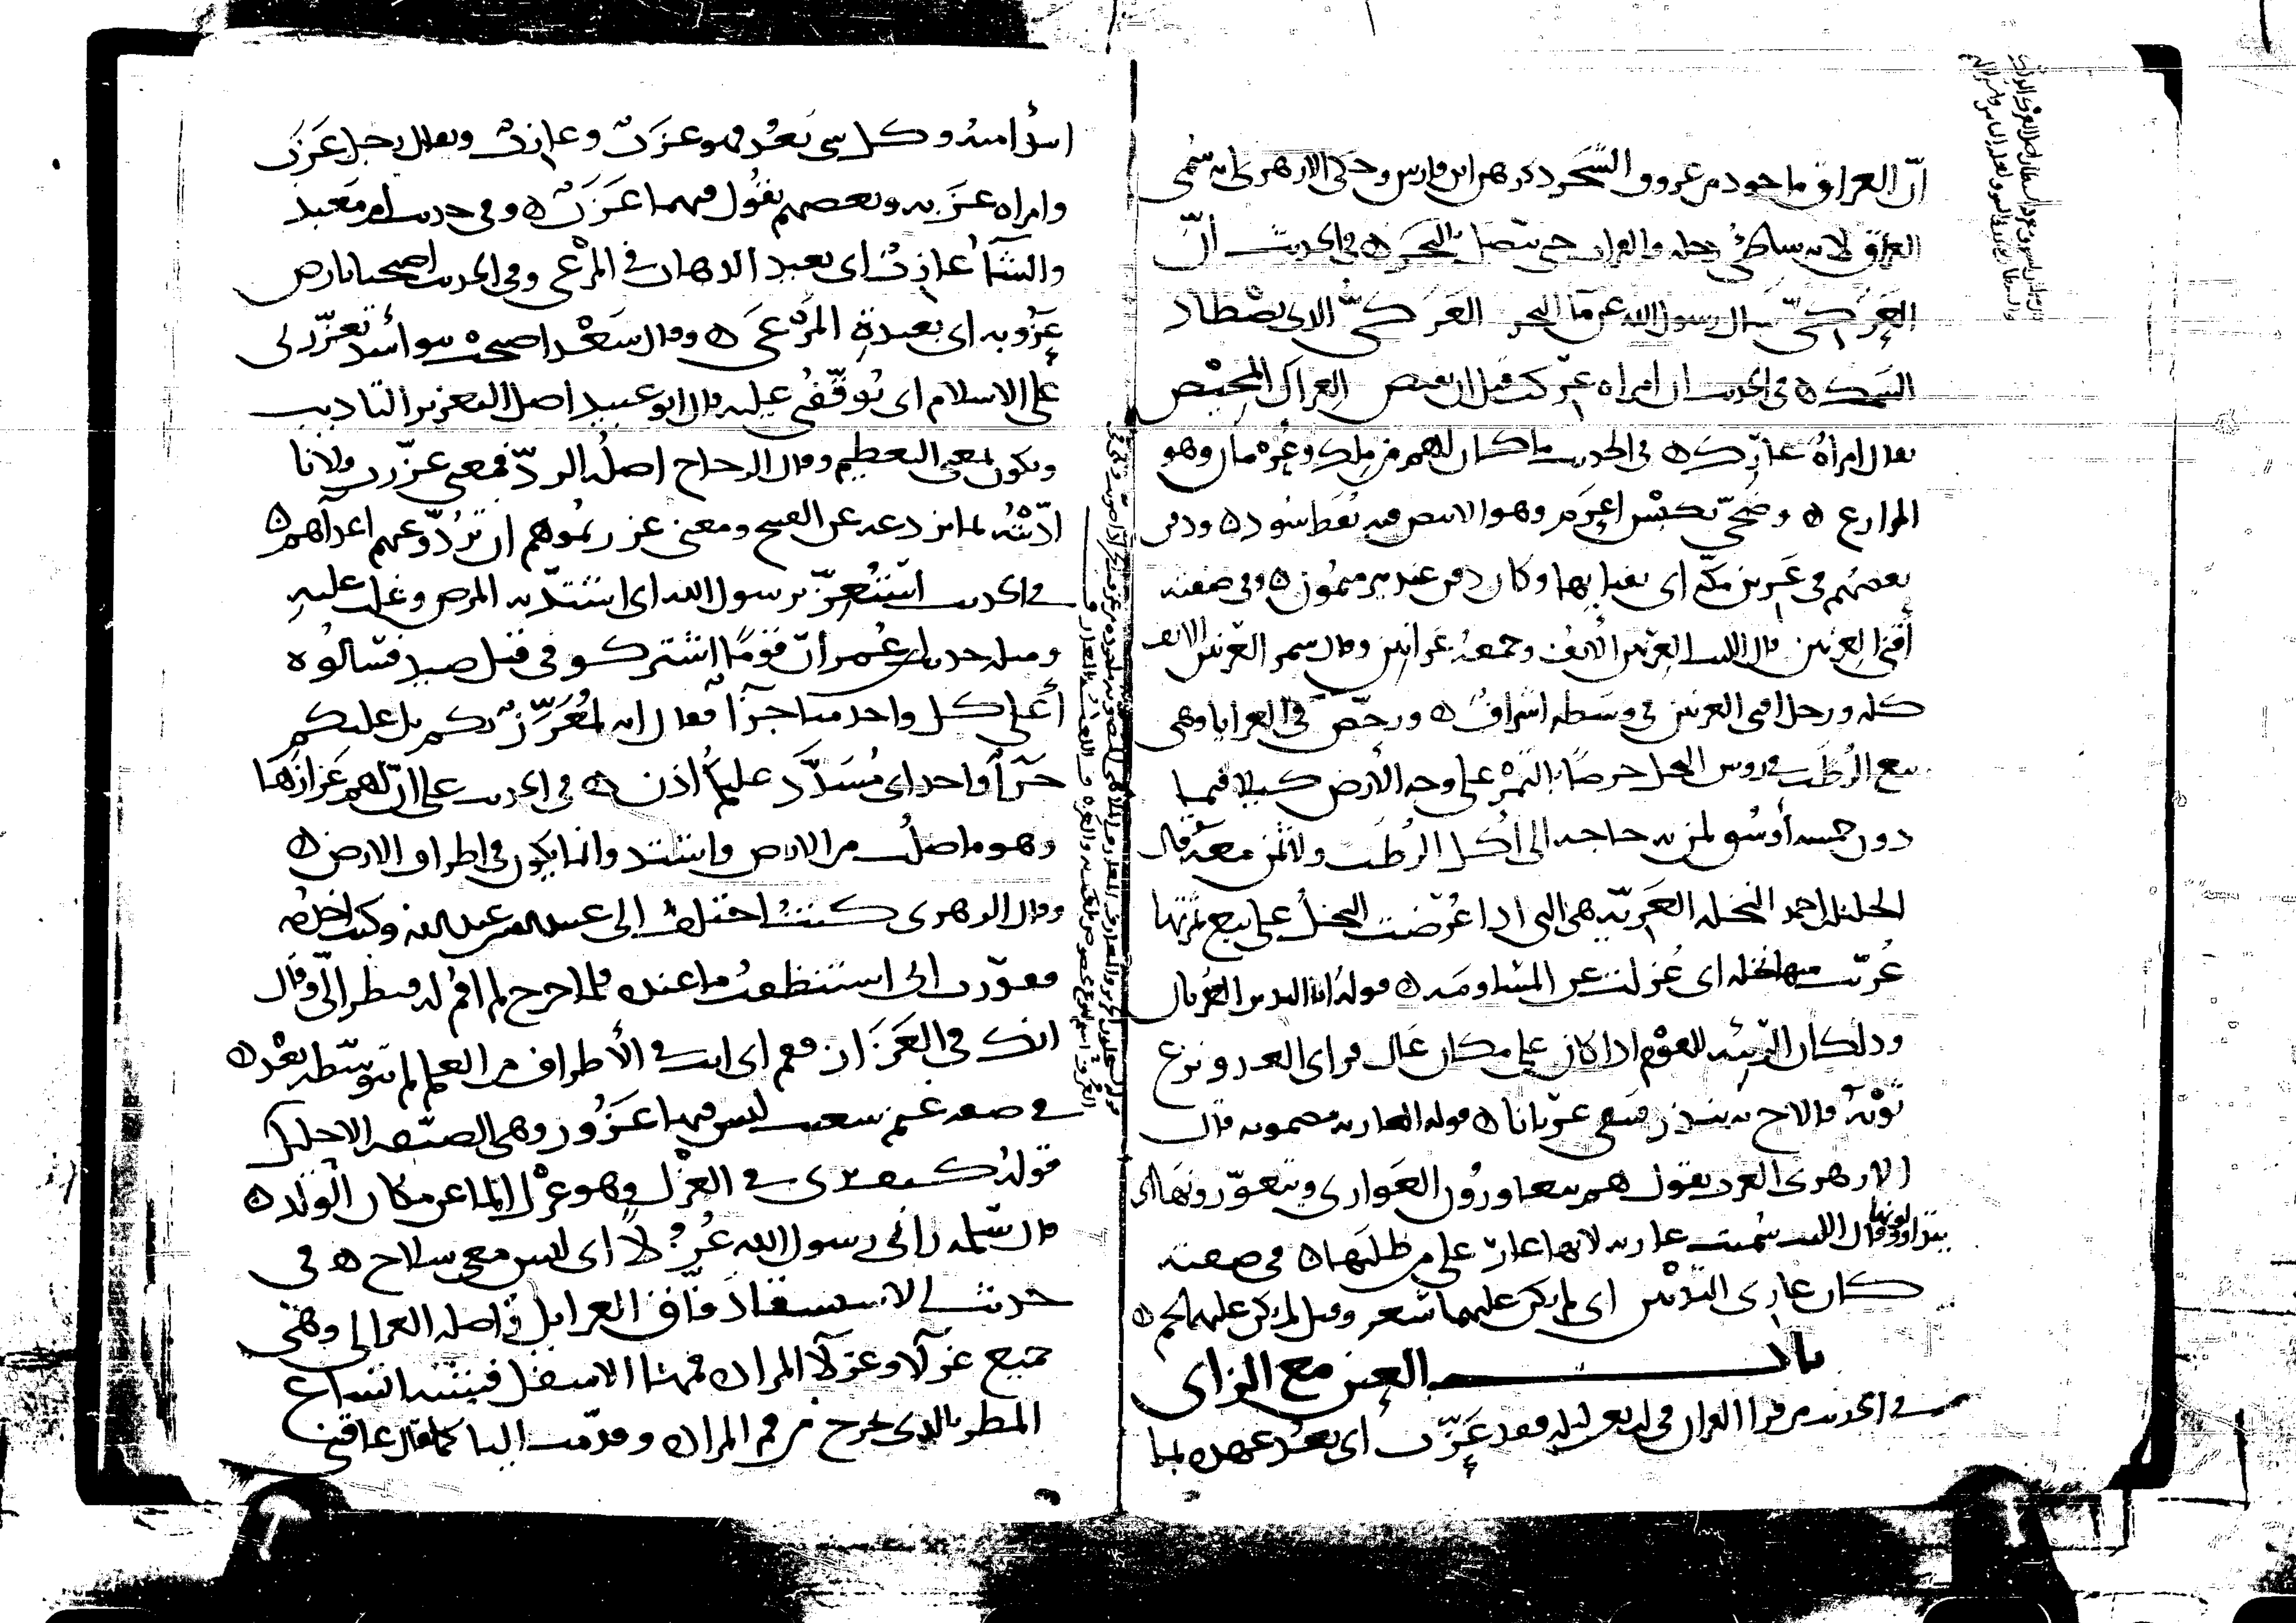 أنّ العراق ماخوذ من عروق الشجر ذكرهن ابن فارس وحكى الازهري انه سمى
العراق لانه شاطئ دجله والفرات حتى يتصل بالبحر ه في الحديث أنّ
العَرَكيّ سال رسول الله عن مآ البحر العَرَكيُّ الذى يصْطاد
السمك ه في الحديث ان امراه عركت قبل ان تفيض العِراك المحيْض
يقال امرأة عارك ه في الحديث ما كان لهم من ملك وعُرْمان وهو
المزارع ه وضحّى بكبْش اعرم وهو الابيض فيه نُقَط سُود ه ودفن
بعضهم في عَرين مكّه اى بفنايها وكان دفن عند بير ميمُون ه وفي صفته
أقنى العِرنين قال الليث العِرْنين الأنف وجمعه عَرانين وقال شمر العِرْنين الانف
كله ورجل اقنى العرنين في وسطه اشراف ه ورخّص في العرايا وهي
بيع الرُطَب في روس النخل خرصًا بالتَمْر على وجه الأرض كيلا فيما
دون خمسه أوسُق لمن به حاجه الى أكل الرُطَب ولا ثمن معَه قال
الخليل بن احمد النخله العَرِيّه هي التى اذا عُرضت النخلُ على بيع ثمرتها
عُرّيت منها نخله اى عُزلت عن المساومَه ه قوله انا النذير العُريان
وذلك ان الربيئه للقوم اذا كان على مكان عَال فراى العدو نزع
ثوْبَهُ فالاح به ينذر فيبقى عرْيانا ه قوله العاريه مضمونه قال
الازهرى العرب تقول هم يتعاورُون العَوارى ويتعوّرونهَا اى
يتداولونها وقال الليث سُميت عاريه لانها عارٌ على من طلبَها ه في صفته
كان عارى الثدْيين اى لم يكن عليهما شعر وقيل لم يكن عليهما لحم ه
باب العين مع الزاى
في الحديث من قرا القران في اربعين ليله فقد عَزَب أى بعُد عهده بما
ابتدأ منه وكل شى بَعُد فهو عَزَب وعازب ويقال رجل عَزَب
وامراه عَزَبه وبعضهم يقُول فيهما عَزَب ه وفي حديث ام مَعْبد
والشآءُ عازب اى بعيد الذهاب في المرْعى وفي الحديث اصبحنا بارض
عَزُوبه اى بعيدة المَرْعَى ه وقال سَعْد اصبحت بنو أسَد تعزّرنى
على الاسلام اى تُوقّفنى عليه قال ابو عبيد اصل التعزير التاديب
ويكون بمعنى التعظيم وقال الزجاج اصله الردّ فمعنى عزّرت فلانا
ادّبْتُه بما يردعه عن القبيح ومعنى عزرتموهم ان تَرُدّوا عنهم اعدآهم ه
في الحديث اسْتُعِزّ برسول الله اى اشتدّ به المرض وغلب عليه
ومثله حديث ابن عُمر أنّ قومًا اشتركو في قتل صيد فسالوه
أعَلى كل واحد منا جزآ فقال انه لَمُعَزَّز بكم بل عليكم
جزآ واحد اى مُشَدَّد عليكم اذن ه في الحديث على انّ لهم عَزازها
وهو ما صلُب من الارض واشتد وانما يكون في اطراف الارض ه
وقال الزهرى كنت اختلف الى عبيد الله بن عبد الله وكنت اخدمه
فقدّرت انى استنظفتُ ما عنده فلما خرج لم اقُم له فنظر الىّ وقال
انك في العَزَاز فقم اى انت في الأطراف من العلم لم تتوسّطه بعْد ه
في صفه غنم شعيب ليس فيها عَزُوز وهى الضيّقه الاحليل
قولهُ كيف ترى في العزْل وهو عزْل الما عن مكان الولد ه
قال سَلمه رانى رسول الله عُزُلًا اى ليس معى سلاح ه في
حديث الاستسقا دفاق العزايل اصله العزالى وهى
جميع عزْلا وعزلآ المزاده فمها الاسفل فيشبه اتساع
المطر بالذى يخرج من فم المزاده وقدّمت اليا كما يقال عاقنى